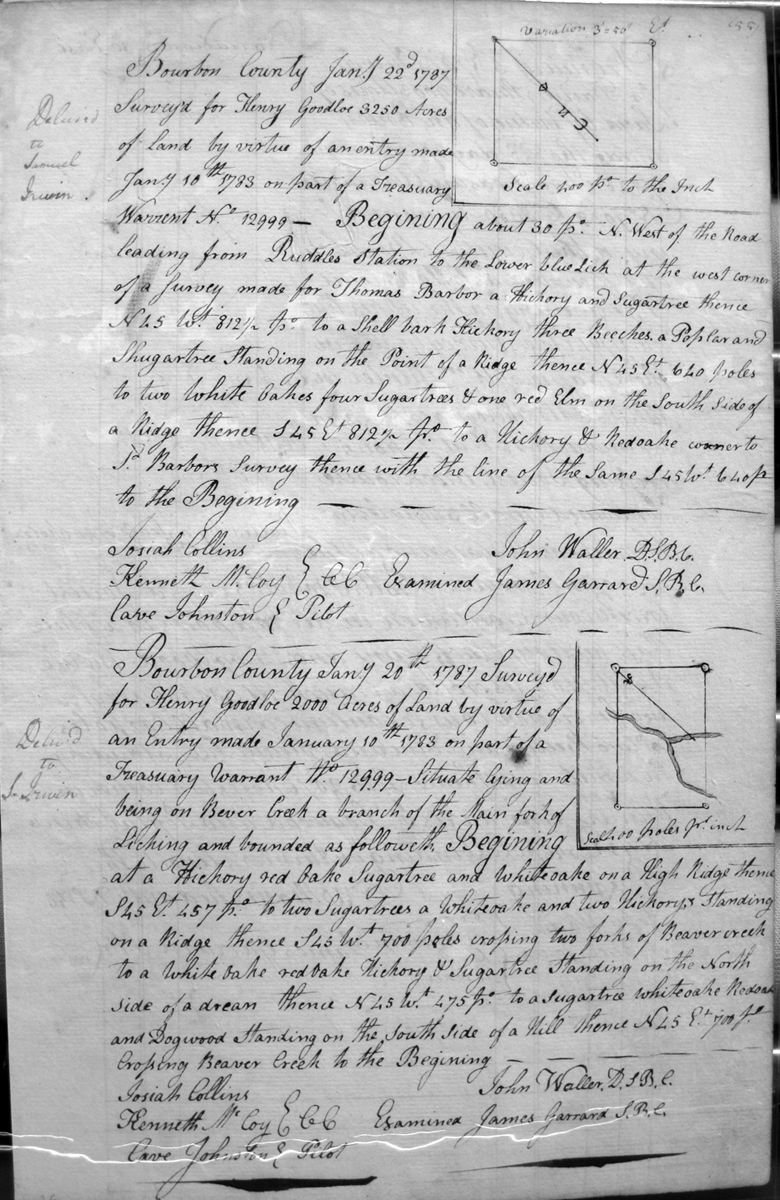 155
Variation 3° 50' Et
Scale 400 po to the Inch
Bourbon County Jany 22d 1787
Survey'd for Henry Goodloe 3250 Acres
of Land by virtue of an entry made
Jany 10th 1783 on part of a Treasuary
Warrent No 12999 — Begining about 30 po N. West of the Road
leading from Ruddles Station to the Lower blue Lick at the west corner
of a Survey made for Thomas Barbor a Hickory and Sugartree thence
N 45 Wt 812½ po to a Shell bark Hickory three Beeches a Poplar and
Shugartree Standing on the Point of a Ridge thence N 45 Et 640 poles
to two White Oakes four Sugartrees & one red Elm on the South Side of
a Ridge thence S 45 Et 812½ po to a Hickory & Redoake corner to
Sd Barbors Survey thence with the line of the Same S 45 Wt 640 p
to the Begining —
Deliver'd
to
Samuel
Irwin
Josiah Collins
Kenneth McCoy } CC
Cave Johnston } Pilot
John Waller D.S.B.C.
Examined James Garrard S.B.C.
Bourbon County Jany 20th 1787 Survey'd
for Henry Goodloe 2000 Acres of Land by virtue of
an Entry made January 10th 1783 on part of a
Treasuary Warrant No 12999 – Situate lying and
being on Bever Creek a branch of the Main fork of
Licking and bounded as followeth Begining
at a Hickory red Oake Sugartree and Whiteoake on a High Ridge thence
S 45 Et 457 po to two Sugartrees a Whiteoake and two Hickorys Standing
on a Ridge thence S 45 Wt 700 poles crossing two forks of Beaver creek
to a White Oake red Oake Hickory & Sugartree Standing on the North
side of a drean thence N 45 Wt 475 po to a Sugartree Whiteoake Redoak
and Dogwood Standing on the South Side of a Hill thence N 45 Et 700 po
Crossing Beaver Creek to the Begining —
Deliv'd
to
S. Irwin
Scale 400 poles pr inch
Josiah Collins
Kenneth McCoy } CC
Cave Johnston } Pilot
John Waller, D.S.B.C.
Examined James Garrard S.B.C.